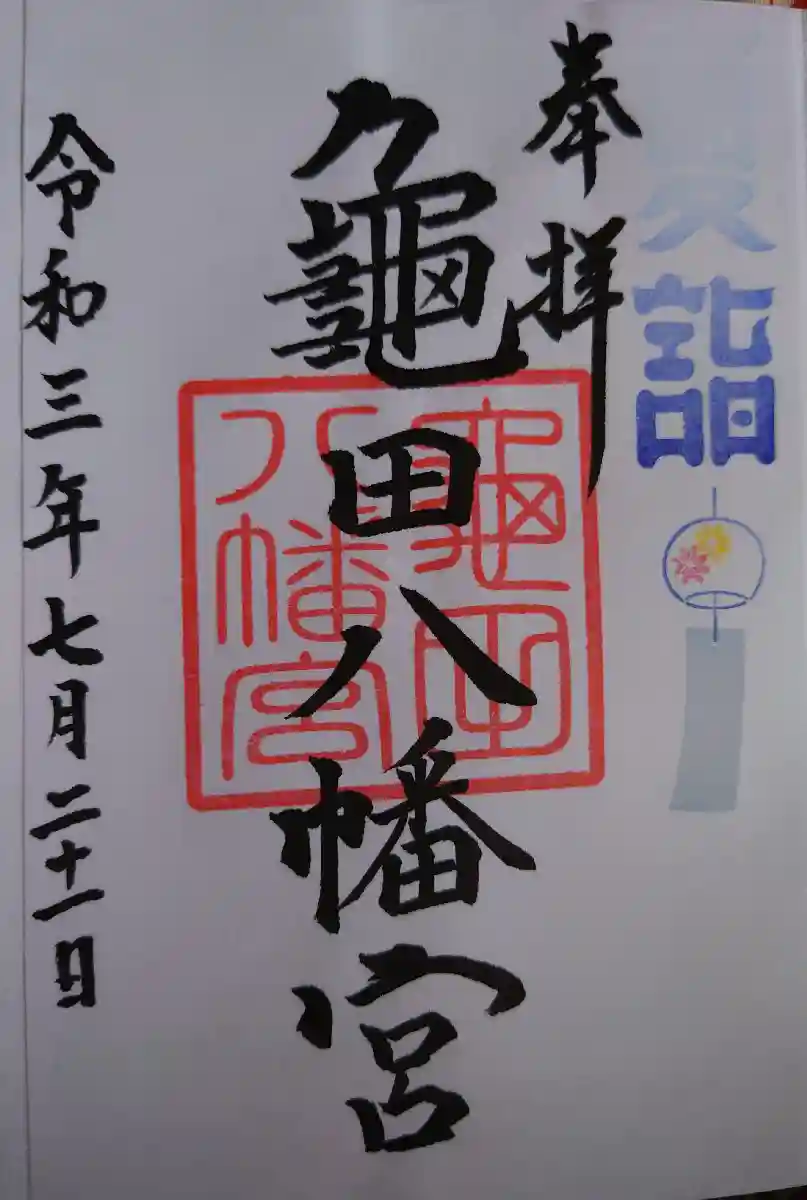 夏詣
奉拝
龜田八幡宮
龜田
八幡宮
令和三年七月二十一日